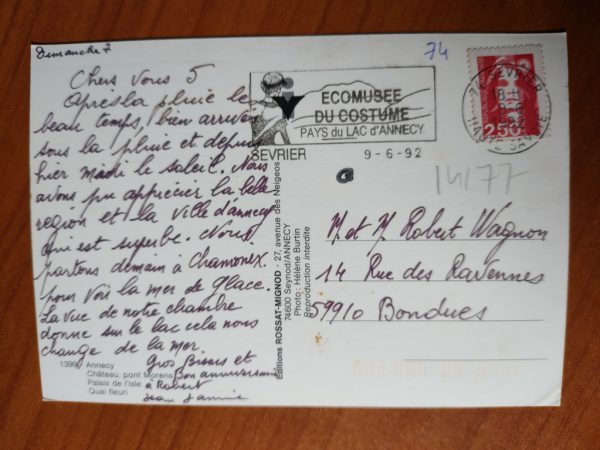 Dimanche 7
Chers vous 5
Après la pluie le
beau temps, bien arrivés
sous la pluie et depuis
hier midi le soleil. Nous
avons pu apprécier la belle
region et la ville d'annecy
qui est superbe. Nous
partons demain à Chamonix
pour voir la mer de glace.
La vue de notre chambre
donne sur le lac cela nous
change de la mer.
Gros Bisous et
Bon anniversaire
à Robert
Jean
1399
Annecy
Château, pont Morens
Palais de l'Isle
Quai fleuri
Editions ROSSAT-MIGNOD - 27, avenue des Neigeos
74600 Seynod/ANNECY
Photo : Hélène Burtin
Reproduction interdite
74
ECOMUSEE
DU COSTUME
PAYS du LAC d'ANNECY
SEVRIER
9-6-92
74 SEVRIER
18-H
9-6
HAUTE SAVOIE
2,50
14177
M. et M. Robert Wagnon
14 Rue des Ravennes
59910 Bondues